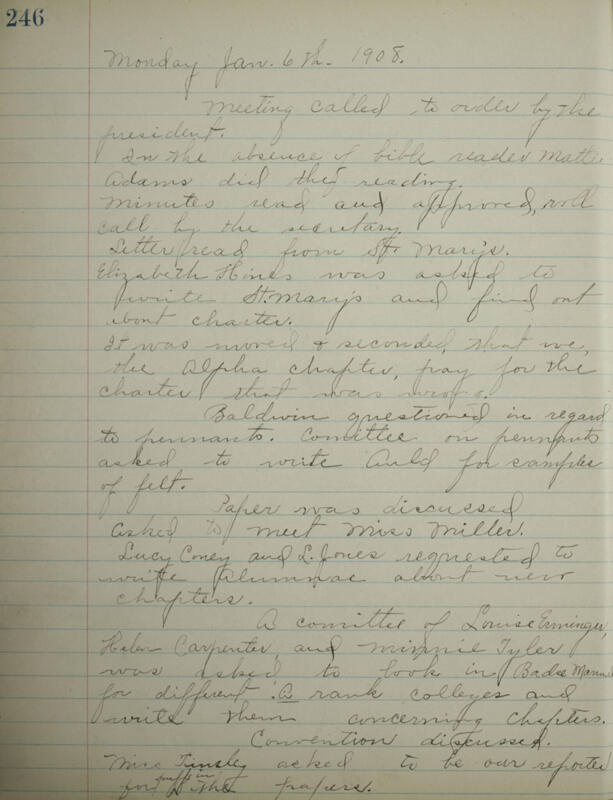 246
Monday Jan. 6th. 1908.
Meeting called to order by the
president.
In the absence of bible reader Mattie
Adams did the reading.
Minutes read and approved, roll
call by the secretary.
Letter read from St. Mary's.
Elizabeth Hines was asked to
write St. Mary's and find out
about charter.
It was moved & seconded that we,
the Alpha Chapter, pay for the
charter that was wrong.
Baldwin questioned in regard
to pennants. Comittee on pennants
asked to write Auld for samples
of felt.
Paper was discussed
asked to meet Miss Miller.
Lucy Coney and L. Jones requested to
write Alumnae about new
chapters.
A comittee of Louise Erminger,
Helen Carpenter, and Minnie Tyler
was asked to look in
for different A rank colleges and
write them concerning chapters.
Convention discussed.
Miss Tinsley asked to be our reporter
for the papers.